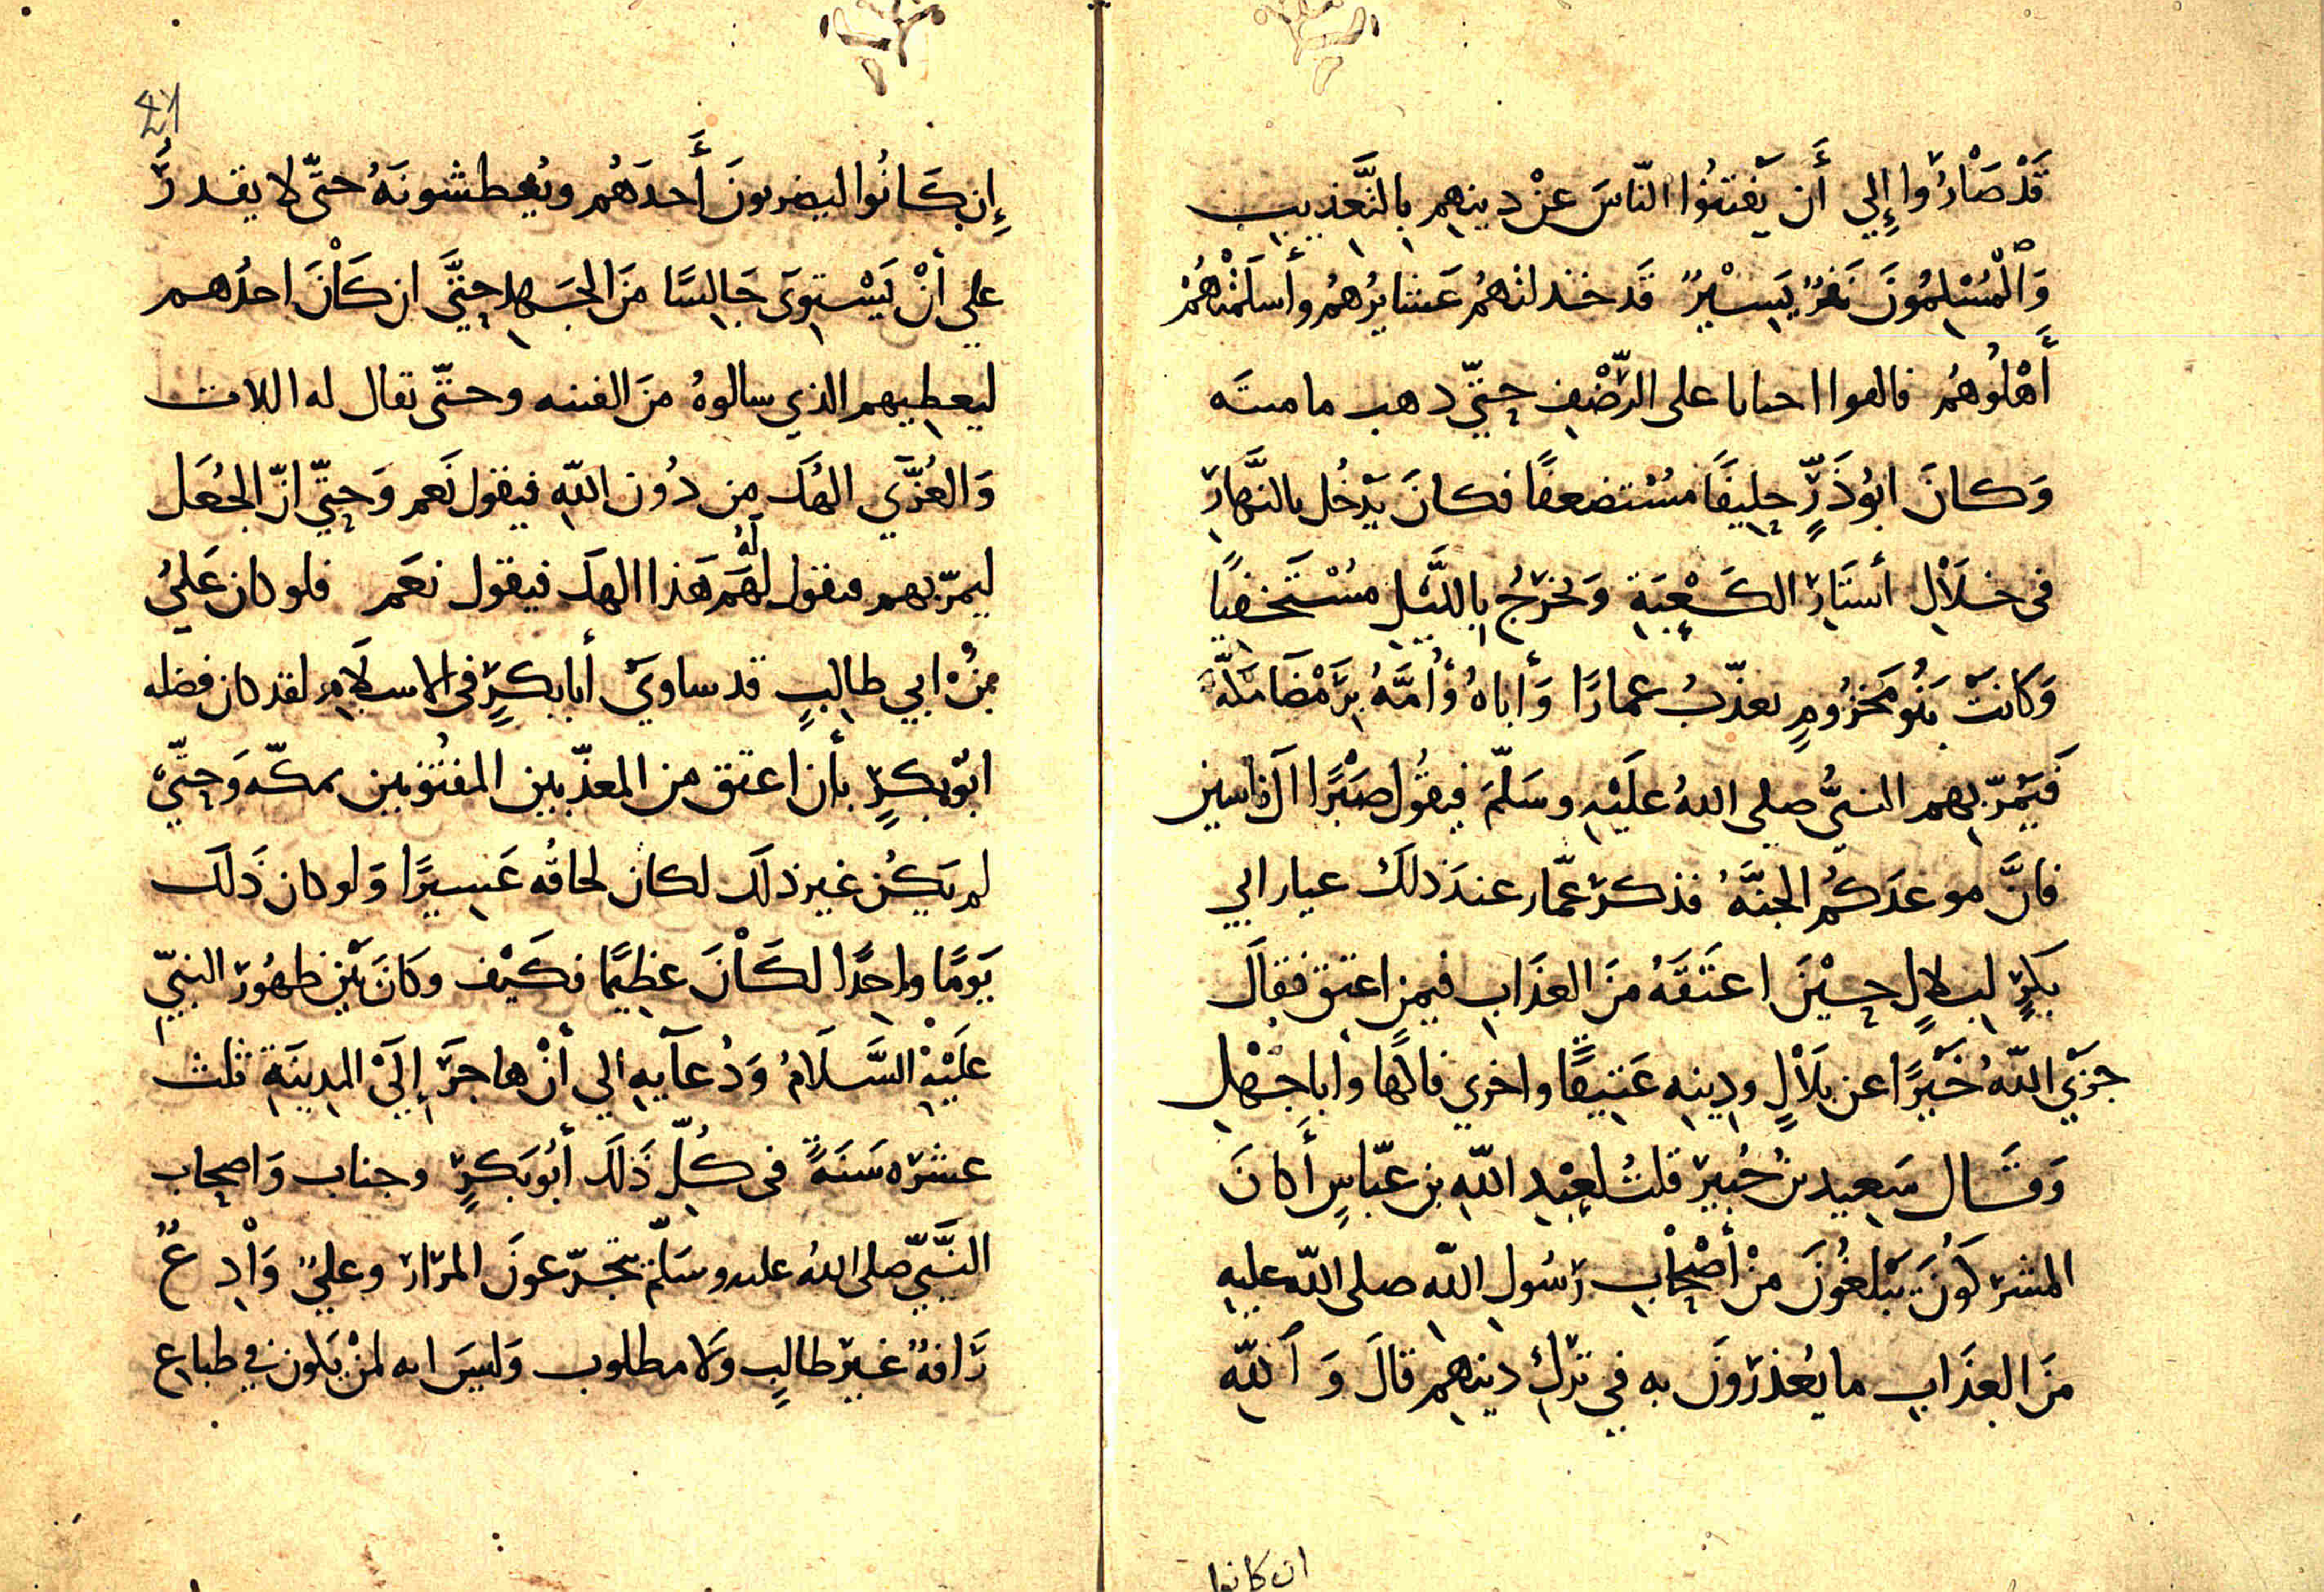 قَدْ صَارُوا إِلي أَن يَفتنُوا النّاسَ عَنْ دينهِم بِالتَّعذِيبِ
وَالْمُسْلِمُونَ نَفَرٌ يَسِيْرٌ قَد خذلتهُم عَشايرُهُم وأَسلَمَتْهُمْ
أَهْلُوهُم فالقوا احيانا على الرَّضْفِ حتّي ذهب مامتَه
وَكانَ ابُوذَرٍّ حلِيفًا مسُتضعفًا فكانَ يَدْخُل بالنَّهارِ
في خِلَالِ أستَارِ الكَعْبَةِ وَيخرُجُ بِاللَّيْلِ مسُتَخفيًا
وَكانَتْ بَنُو مَخزُومٍ يعذّبُ عمارًا وَأباهُ وَأُمَّهُ بِرَمْضَا مَكَّة
فَيَمُرّ بِهِم النبيُّ صلى اللهُ علَيْهِ وسَلّمَ فيقُول صَبْرًا آل ياسِين
فانَّ موعدَكُم الجنَّهُ فذكرَ عمّار عندَ ذلكَ عيار ابي
بَكرٍ لبلالٍ حِيْنَ اعتَقَهُ مِنَ العذَابِ فيمن اعتق فقالَ
جزَي اللّهُ خَيْرًا عن بلَالٍ ودِينِهِ عَتيِقًا واخري فاكهًا واباجَهْلِ
وَقَال سَعِيد بنُ جُبير قلتُ لعَبْدِ اللّهِ بن عبّاسٍ أَكانَ
المشركوُنَ يَبْلغُونَ مِنْ أصْحَابِ رَسُولِ اللّهِ صلى اللّه عليهِ
مِنَ العَذَابِ ما يُعْذرَوُنَ به في تركِ دينهِم قالَ وَ اللّهِ
ان كانوا
إِن كَانُوا ليضربونَ أَحدَهُم ويُعطشونَهُ حتّى لا يقدرُ
علي أنْ يَسْتوِىَ جَالِسًا مِنَ الجَهدِ حتَّي ان كَانَ احدُهم
ليعطِيهم الذي سالوهُ مِنَ الفتنه وحتّى تقال له اللات
وَالعُزَّي الهُكَ مِن دُون اللّهِ فيقول نَعم وَحتّي انّ الجُعَل
ليمرّ بهم فيقول لهُم لَهُ هَذا الهكَ فيقول نعَم فلو كان عَليُ
بنُ ابي طالِبٍ قد ساويَ أبابكرٍ في الاسلَامِ لقد كان فضله
ابُوبكرٍ بأن اعتق من المعذّبين المفتُونين بمكّه وَحتّي
لم يَكُن غير ذلكَ لكان لحاقُه عَسِيرًا وَلو كان ذَلكَ
يَومًا واحِدًا لكَانَ عظِيمًا فكَيْف وكَانَ بَيْن ظهُورِ النبيّ
علَيْهِ السَّلَامُ وَدُعَآيِهِ الي أنْ هاجَرَ إِلَيْ المدِينَةِ ثلث
عشره سَنَةً في كُلِّ ذَلكَ أبُوبَكرٍ وجناب وَاصحاب
النَّبيّ صلى اللهُ عليه وسَلّم يتجرّعونَ المرار وعليٌ وَادِعٌ
رَافهٌ غيرَ طالِبٍ وَلا مطلوب وَليسَ انه لمْ يَكون في طباعِ